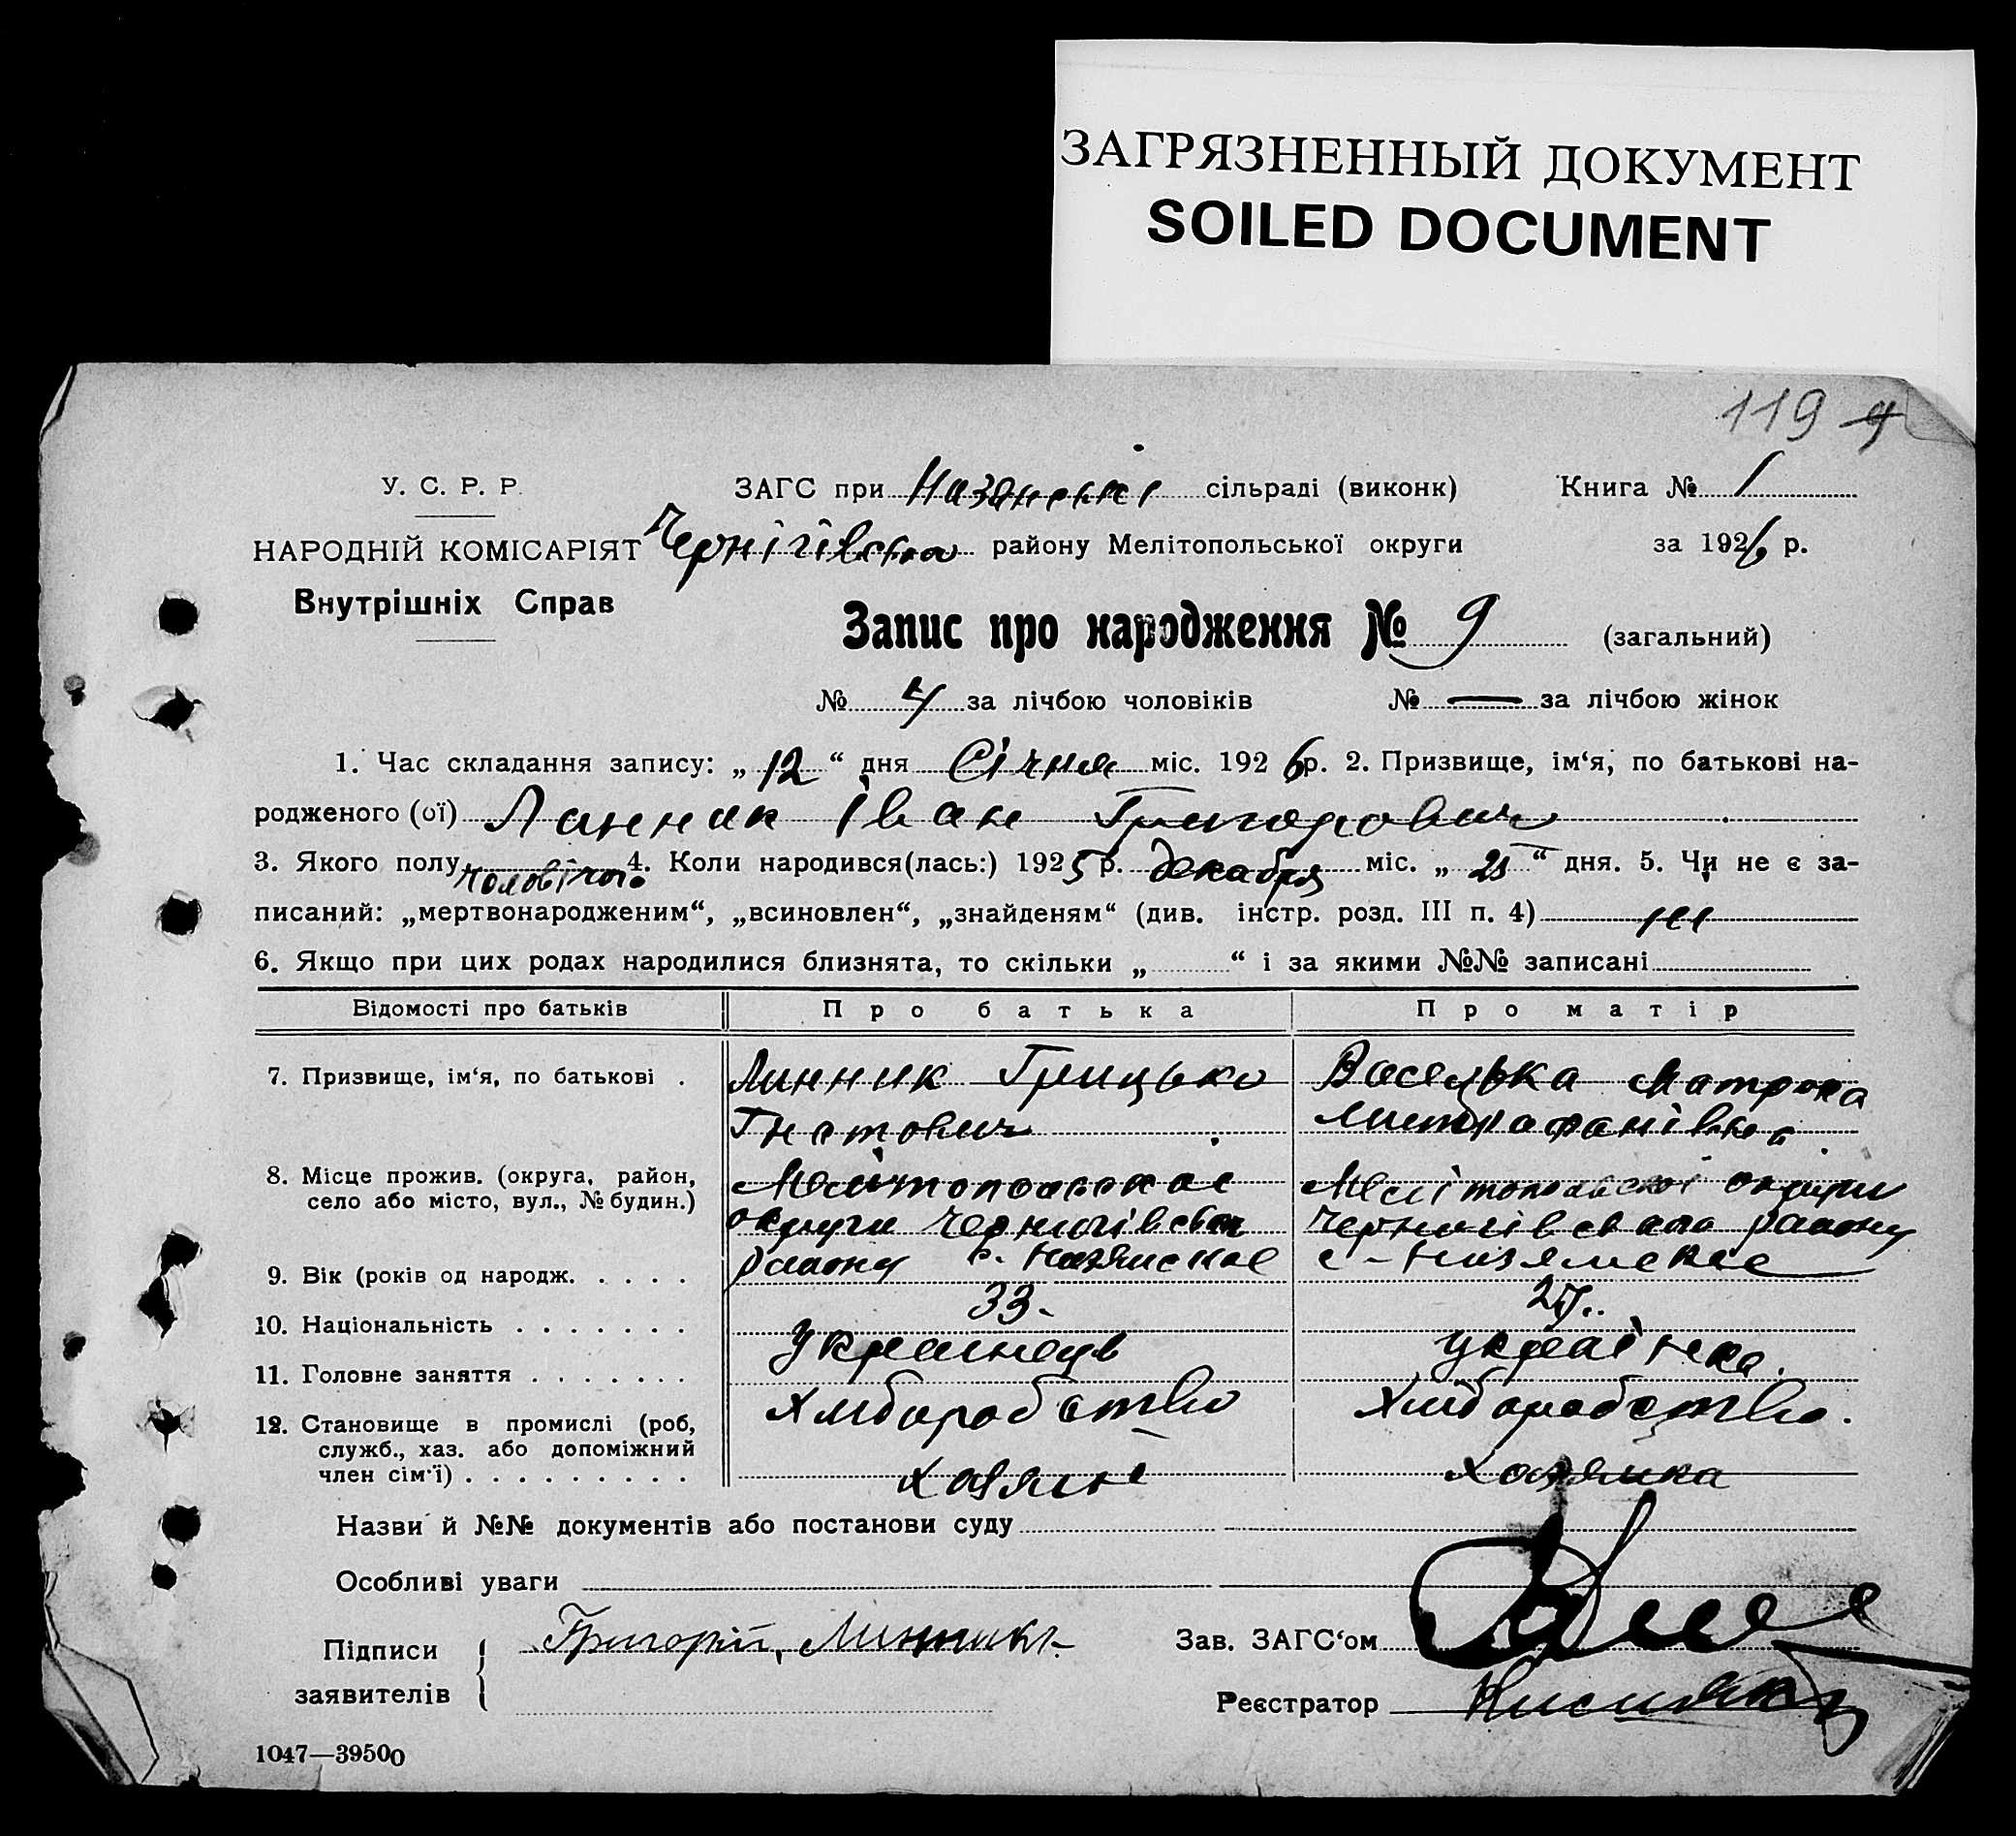 ЗАГРЯЗНЕННЫЙ ДОКУМЕНТ
SOILED DOCUMENT
119
У. С. Р. Р.
ЗАГС при сільраді (виконк) Книга № 1
НАРОДНІЙ КОМІСАРІЯТ Чернігівсько району Мелітопольської округи за 1926 р.
Внутрішніх Справ
Запис про народження № 9 (загальний)
№ за лічбою чоловіків № — за лічбою жінок
1. Час складання запису: „12“ дня Січня міс. 1926 р. 2. Призвище, ім‘я, по батькові на-
родженого (ої) Линник Іван Григорович
3. Якого полу чоловічого 4. Коли народився(лась:) 1925 р. декабря міс. „ “ дня. 5. Чи не є за-
писаний: „мертвонародженим“, „всиновлен“, „знайденям“ (див. інстр. розд. III п. 4) ні
6. Якщо при цих родах народилися близнята, то скільки „ “ і за якими №№ записані
Відомості про батьків Про батька Про матір
7. Призвище, ім‘я, по батькові . Линник Грицько Матрона
Гнатович Митрофанівна.
8. Місце прожив. (округа, район, село або місто, вул., № будин.) Мелітопольської округи
округи Чернигівсько Чернигівсько району
району с.
9. Вік (років од народж. . . . . 33.
10. Національність . . . . . . . Українець українка.
11. Головне заняття . . . . . . . Хліборобство Хліборобство.
12. Становище в промислі (роб,
служб., хаз. або допоміжний
член сім‘ї) . . . . . . . . . Хазяін Хазяйка
Назви й №№ документів або постанови суду
Особливі уваги
Підписи Григорій Линник Зав. ЗАГС‘ом
заявителів Реєстратор
1047—39500